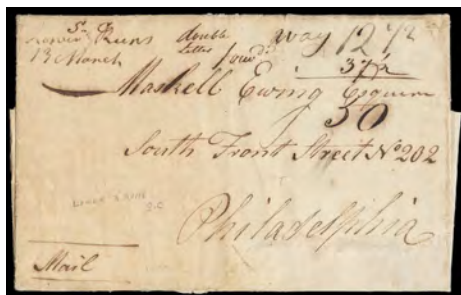 So
Lower Runs
13 March
double
Letter
forwd.
way 12 1/2
37 1/2
50
Maskell Ewing Esquire
South Front Street No 202
Philadelphia
Lower 3 Runs
S.C
Mail